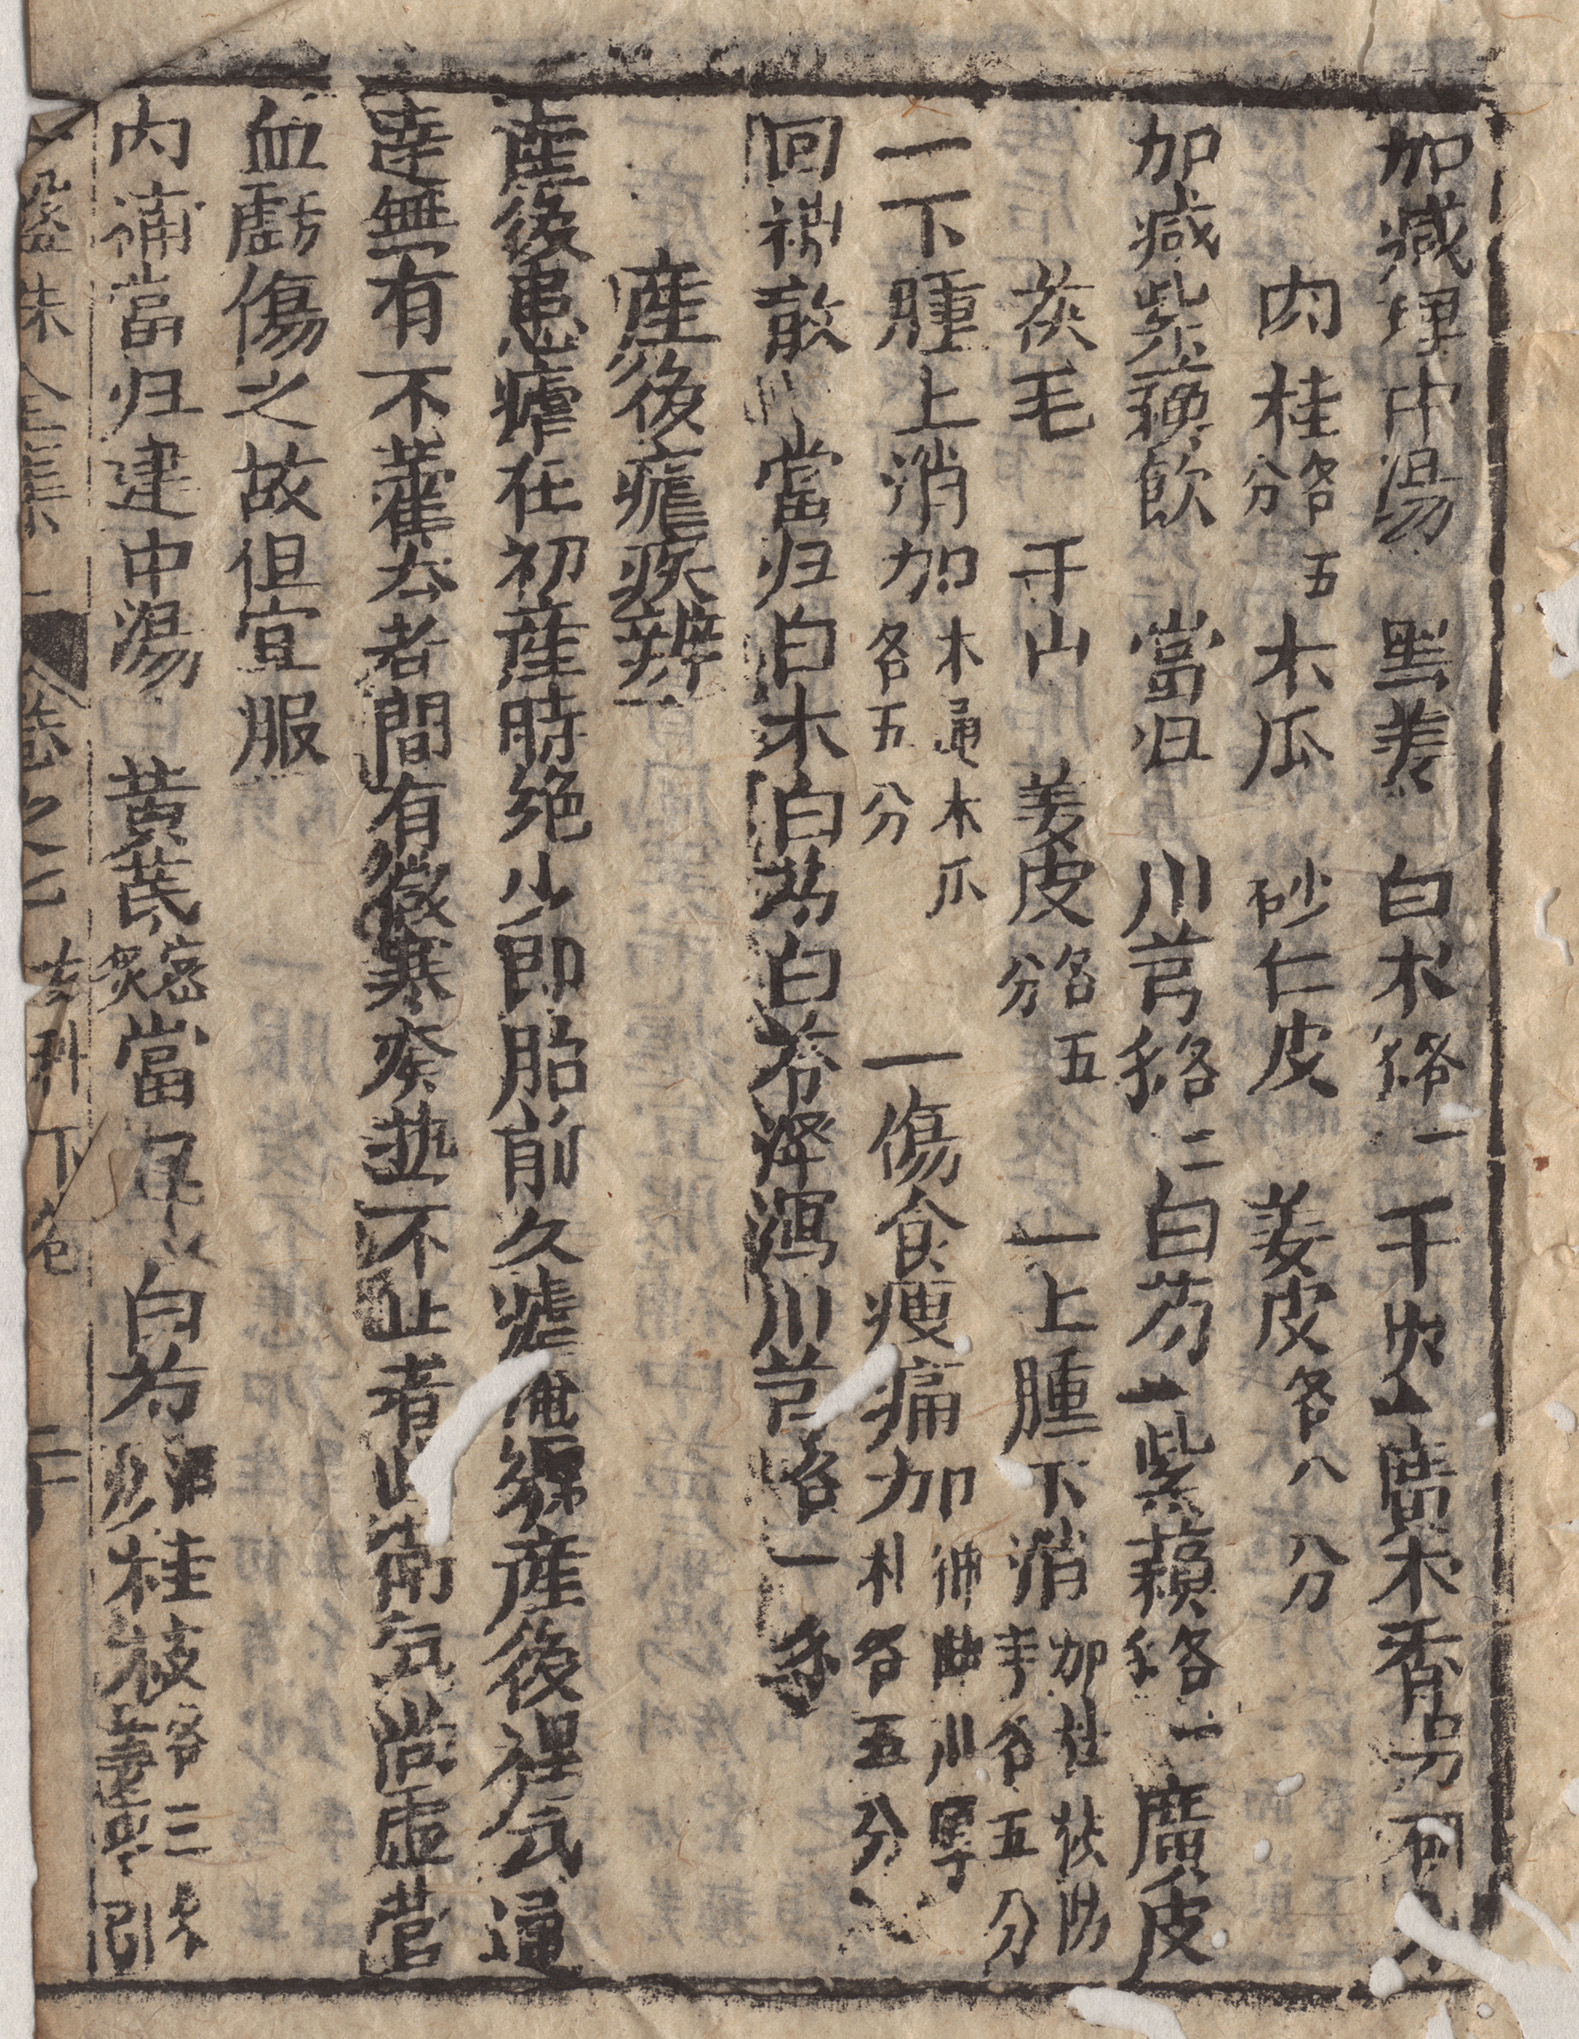 加減理中湯 黑姜 白朮 各一 干 廣木香
肉桂 各五分 木瓜 砂仁皮 姜皮 各八分
加減紫穌飲 當归 川芎 各二 白芍 一 紫蘓 各一 廣皮
茯毛 于山 姜皮 各五分 一上腫下消 加杜茯防 各五分
一下腫上消加 木通木瓜 各五分 一傷食瘦痛加 神曲川厚朴 各五分
回 散 當归白木白芍白苓澤瀉川芎 各一
產後瘧疾辨
產後患瘧在初產時绝少即胎前久瘧 產後 去
無有不藿 者間有微寒癸热不止者 氣尚虛营
血虧傷之故但宜服
内補當归建中湯 黃芪 蜜炙 當 白芍 桂枝 各三
珠 集 卷之二 女科下卷 二十